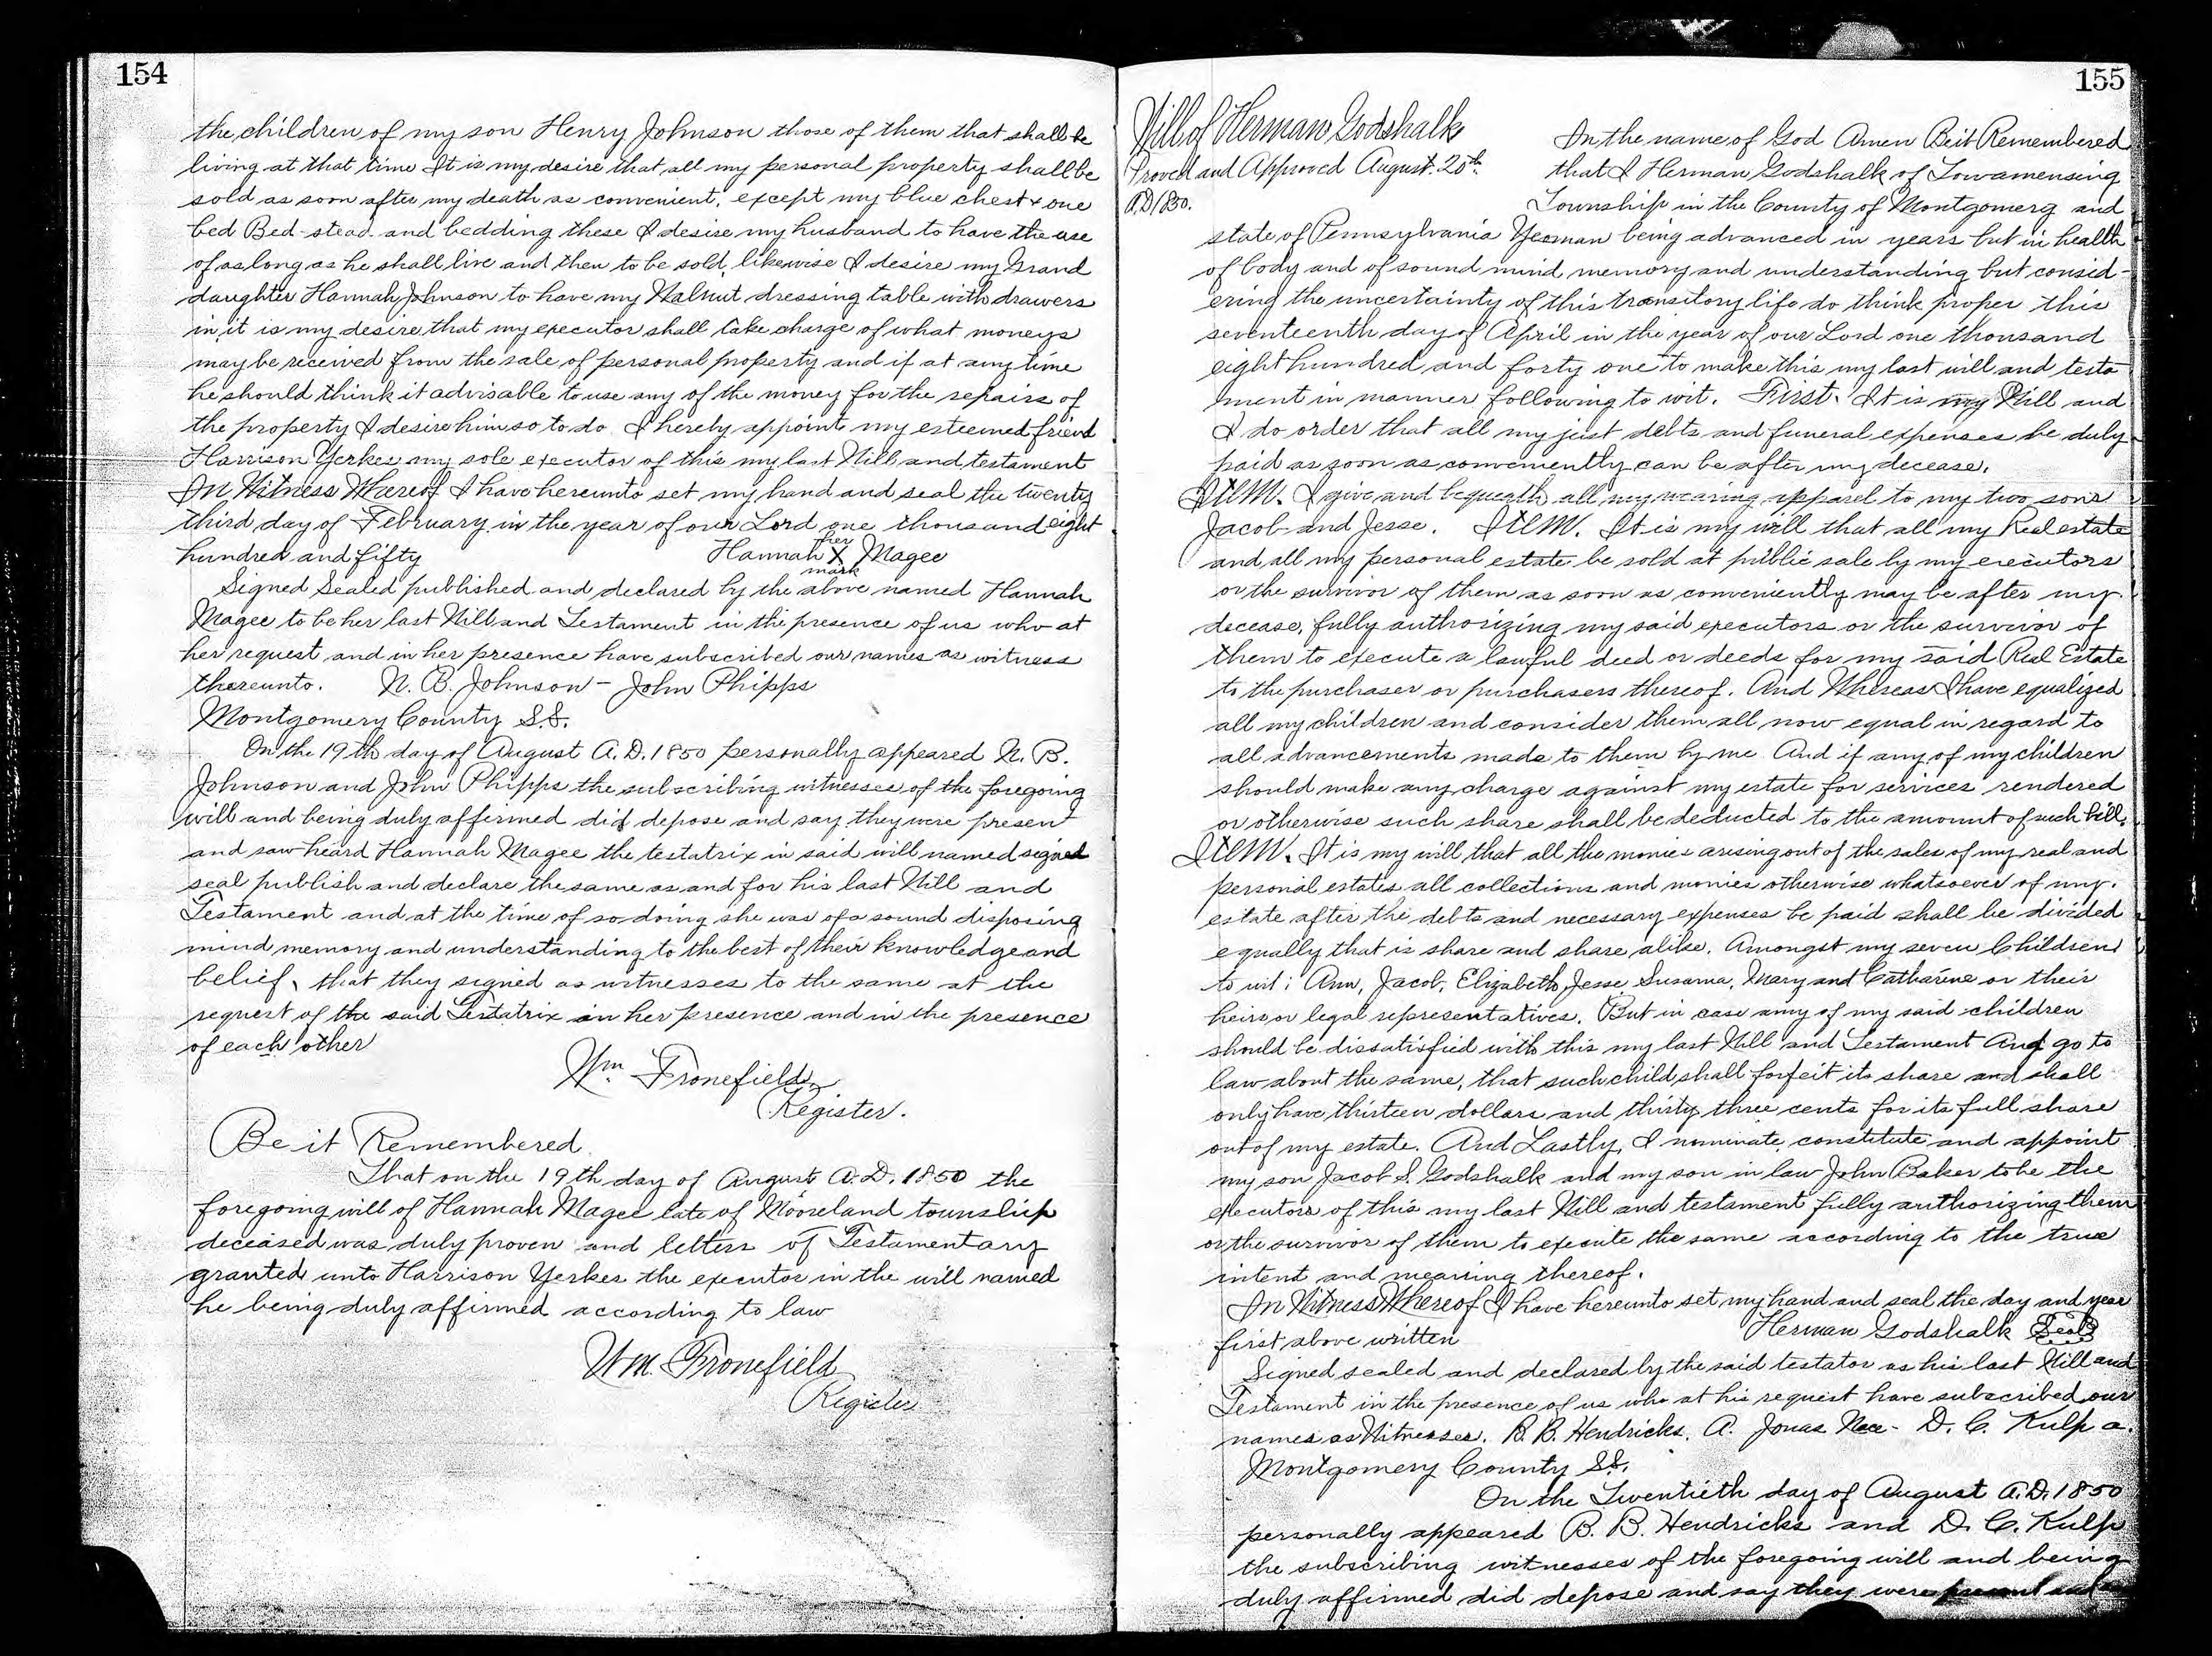 154
the children of my son Henry Johnson those of them that shall be
living at that time It is my desire that all my personal property shall be
sold as soon after my death as convenient, except my blue chest & one
bed Bed-stead and bedding these I desire my husband to have the use
of as long as he shall live and then to be sold, likewise I desire my Grand
daughter Hannah Johnson to have my Walnut dressing table with drawers
in it is my desire that my executor shall take charge of what moneys
may be received from the sale of personal property and if at any time
he should think it advisable to use any of the money for the repairs of
the property I desire him so to do I hereby appoint my esteemed friend
Harrison Yerkes my sole executor of this my last Will and testament
In Witness Whereof I have hereunto set my hand and seal the twenty
third day of February in the year of our Lord one thousand eight
hundred and fifty Hannah her X mark Magee
Signed Sealed published and declared by the above named Hannah
Magee to be her last Will and Testament in the presence of us who at
her request and in her presence have subscribed our names as witness
thereunto. N. B. Johnson - John Phipps
Montgomery County S.S.
On the 19th day of August A.D. 1850 personally appeared N. B.
Johnson and John Phipps the subscribing witnesses of the foregoing
will and being duly affirmed did depose and say they were present
and saw heard Hannah Magee the testatrix in said will named signed
seal publish and declare the same as and for his last Will and
Testament and at the time of so doing she was of a sound disposing
mind memory and understanding to the best of their knowledge and
belief, that they signed as witnesses to the same at the
request of the said Testatrix in her presence and in the presence
of each other
Wm. Fronefield
Register.
Be it Remembered
That on the 19th day of August A.D. 1850 the
foregoing will of Hannah Magee late of Mooreland township
deceased was duly proven and letters of Testamentary
granted unto Harrison Yerkes the executor in the will named
he being duly affirmed according to law
Wm. Fronefield
Register
155
Will of Herman Godshalk
Proved and Approved August 20th
A.D. 1850.
In the name of God Amen Be it Remembered
that I Herman Godshalk of Towamensing
Township in the County of Montgomerg and
state of Pennsylvania Yeoman being advanced in years but in health
of body and of sound mind memory and understanding but consid-
ering the uncertainty of this transitory life do think proper this
seventeenth day of April in the year of our Lord one thousand
eight hundred and forty one to make this my last will and testa
ment in manner following to wit. First. It is my Will and
I do order that all my just debts and funeral expenses be duly
paid as soon as conveniently can be after my decease.
ITEM. I give and bequeath all my wearing apparel to my two sons
Jacob and Jesse. ITEM. It is my will that all my Real estate
and all my personal estate be sold at public sale by my executors
or the survivor of them as soon as conveniently may be after my
decease, fully authorizing my said executors or the survivor of
them to execute a lawful deed or deeds for my said Real Estate
to the purchaser or purchasers thereof. And Whereas I have equalized
all my children and consider them all now equal in regard to
all advancements made to them by me And if any of my children
should make any charge against my estate for services rendered
or otherwise such share shall be deducted to the amount of such bill.
ITEM. It is my will that all the monies arising out of the sales of my real and
personal estates all collections and monies otherwise whatsoever of my
estate after the debts and necessary expenses be paid shall be divided
equally that is share and share alike. Amongst my seven Children
to wit: Ann, Jacob, Elizabeth, Jesse, Susanna, Mary and Catharine or their
heirs or legal representatives. But in case any of my said children
should be dissatisfied with this my last Will and Testament And go to
law about the same, that such child shall forfeit its share and shall
only have thirteen dollars and thirty three cents for its full share
out of my estate. And Lastly, I nominate constitute and appoint
my son Jacob S. Godshalk and my son in law John Baker to be the
executors of this my last Will and testament fully authorizing them
or the survivor of them to execute the same according to the true
intent and meaning thereof.
In Witness Whereof I have hereunto set my hand and seal the day and year
first above written Herman Godshalk Seal
Signed sealed and declared by the said testator as his last Will and
Testament in the presence of us who at his request have subscribed our
names as Witnesses. B. B. Hendricks. A. Jonas Nace - D. C. Kulp a.
Montgomery County SS.
On the Twentieth day of August A.D. 1850
personally appeared B. B. Hendricks and D. C. Kulp
the subscribing witnesses of the foregoing will and being
duly affirmed did depose and say they were present and